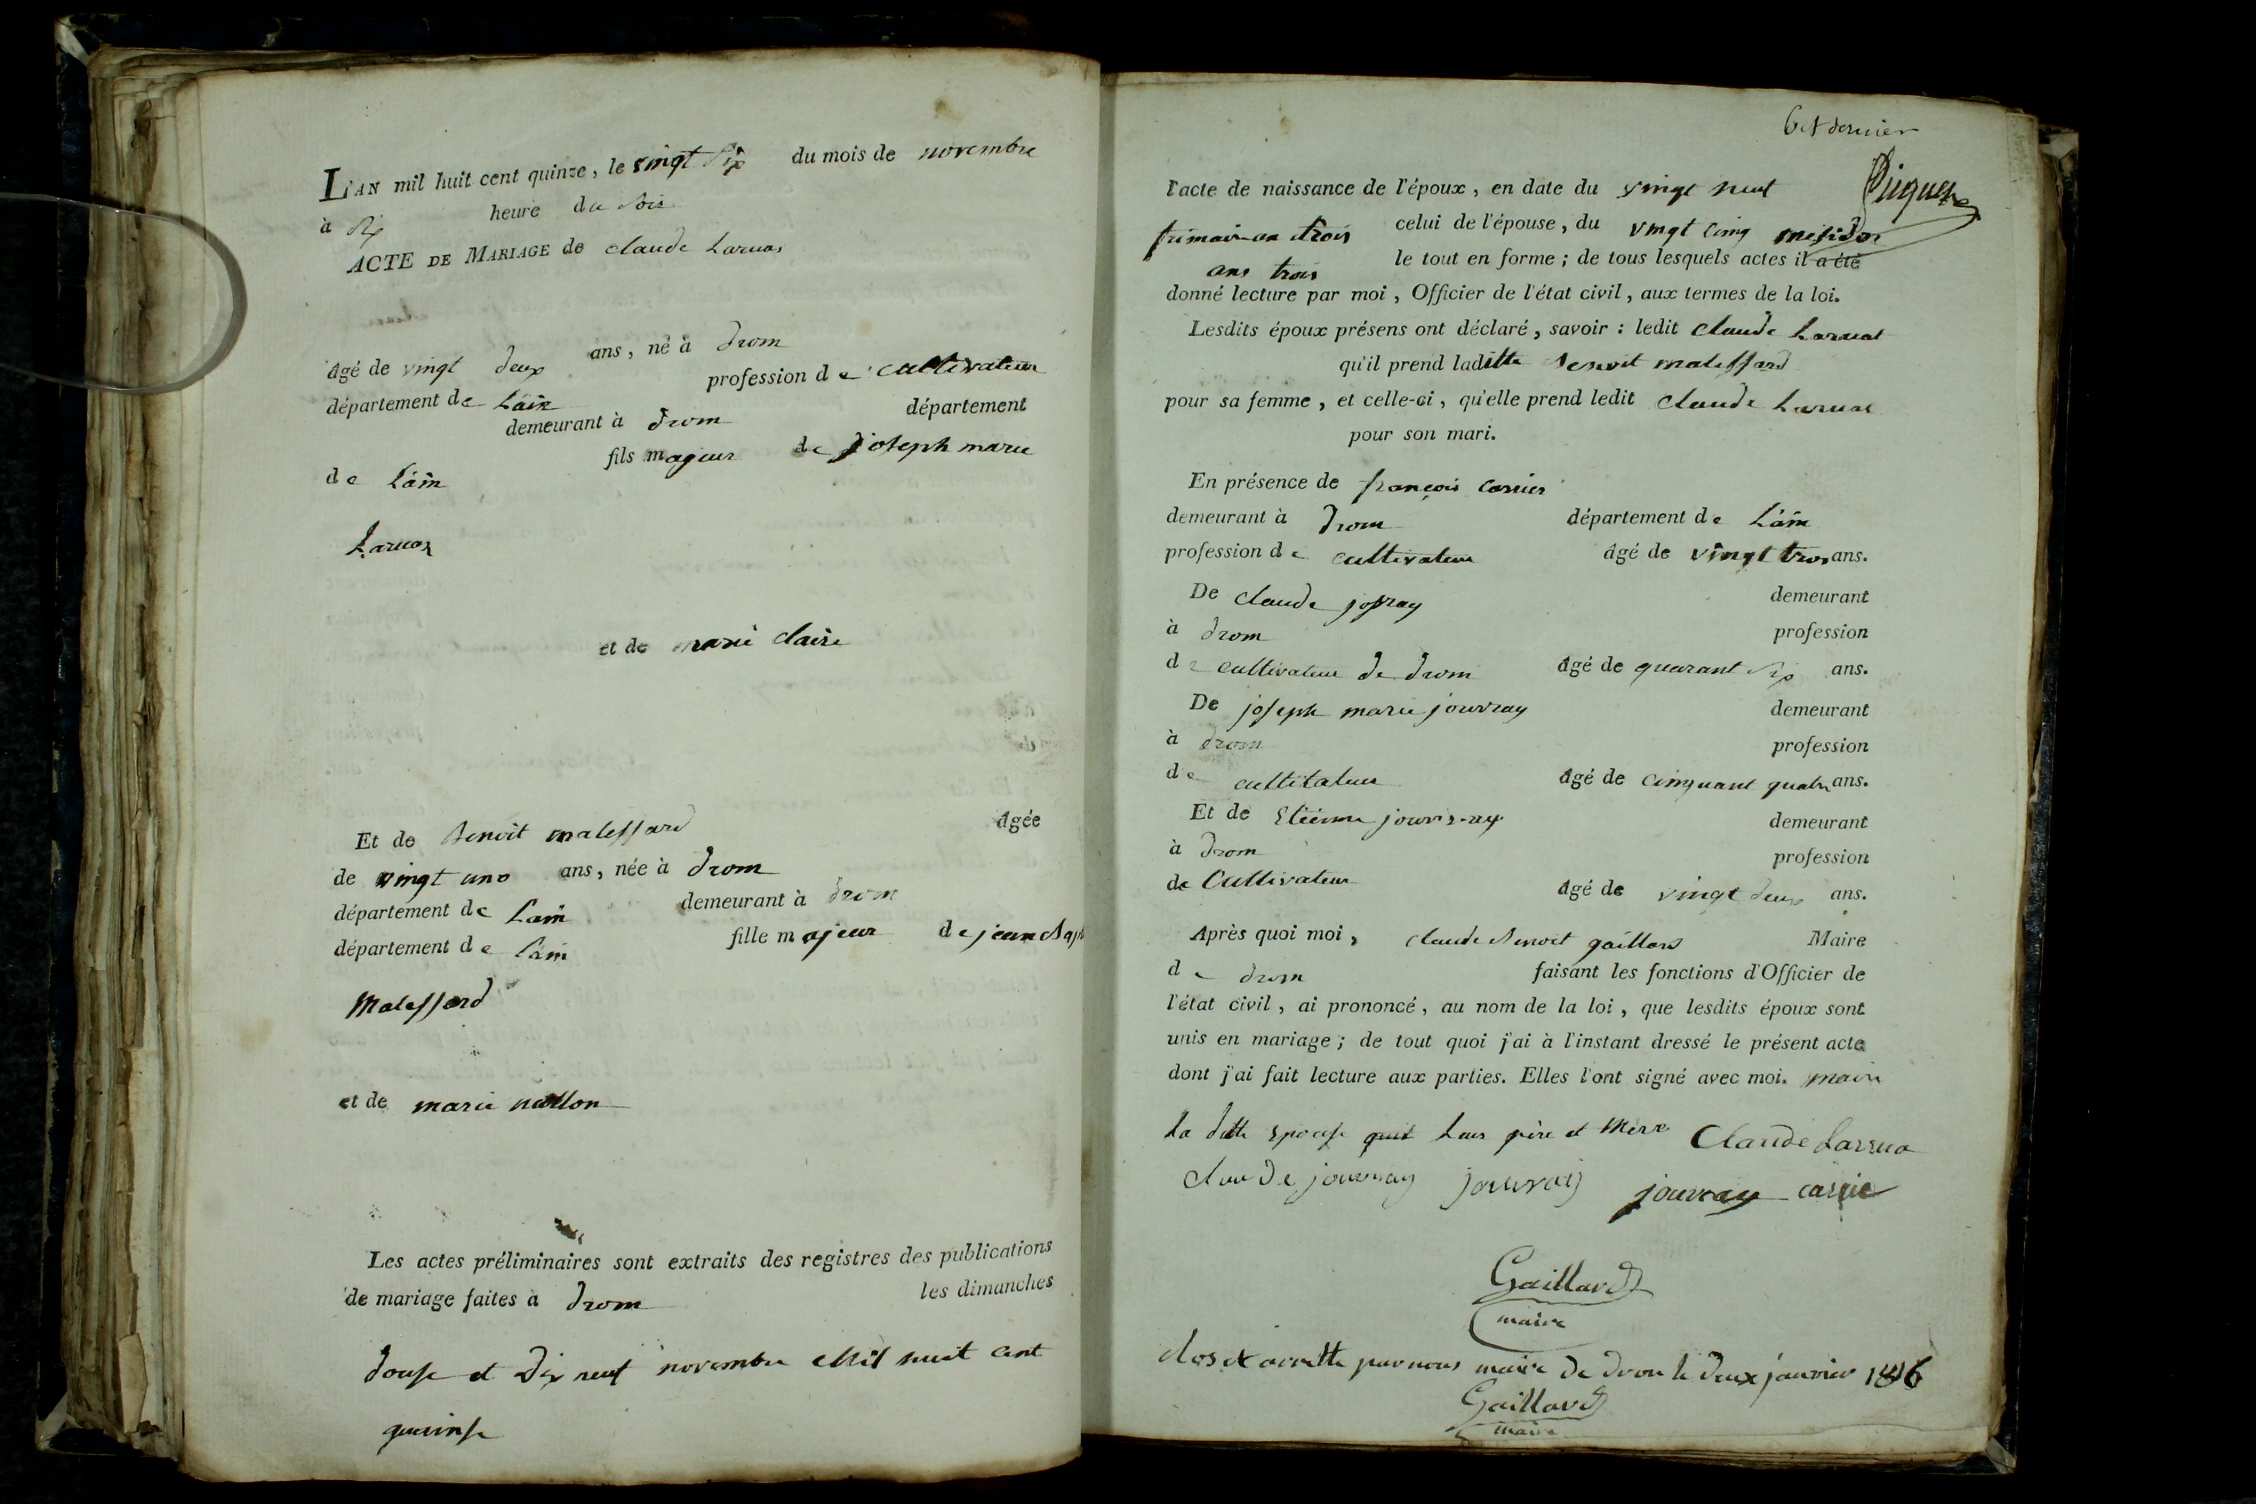 L'AN mil huit cent quinze, le vingt six du mois de novembre
à six heure du soir
ACTE DE MARIAGE de claude Laruas
âgé de vingt deux ans, né à drom
département de Lain profession de cultivateur
demeurant à drom département
de Lain fils majeur de joseph marie
Laruas
et de marie claire
Et de Benoit malessard âgée
de vingt uno ans, née à drom
département de Lain demeurant à drom
département de Lain fille majeur de jean
Malessard
et de marie
Les actes préliminaires sont extraits des registres des publications
de mariage faites à drom les dimanches
douse et dix neuf novembre Mil huit cent
quinse
6 et dernier
l'acte de naissance de l'époux, en date du vingt neuf
frimair an trois celui de l'épouse, du vingt cinq mesidor
ans trois le tout en forme; de tous lesquels actes il a été
donné lecture par moi, Officier de l'état civil, aux termes de la loi.
Lesdits époux présens ont déclaré, savoir: ledit claude Laruas
qu'il prend laditte Benoit malessard
pour sa femme, et celle-ci, qu'elle prend ledit claude Laruas
pour son mari.
En présence de françois carrier
demeurant à drom département de Lain
profession de cultivateur âgé de vingt trois ans.
De claude demeurant
à drom profession
de cultivateur de drom âgé de quarant six ans.
De joseph marie jouvray demeurant
à drom profession
de cultitateur âgé de cinquant quatr ans.
Et de Etienne demeurant
à drom profession
de Cultivateur âgé de vingt deux ans.
Après quoi moi, claude Benoit gaillard Maire
de drom faisant les fonctions d'Officier de
l'état civil, ai prononcé, au nom de la loi, que lesdits époux sont
unis en mariage; de tout quoi j'ai à l'instant dressé le présent acte
dont j'ai fait lecture aux parties. Elles l'ont signé avec moi.
La ditte epouse leur père et Mère Claude Larrua
claude jouvray jouvray jouvray
Gaillard
maire
clos et arrette par nous maire de drom le deux janvier 1816
Gaillard
maire